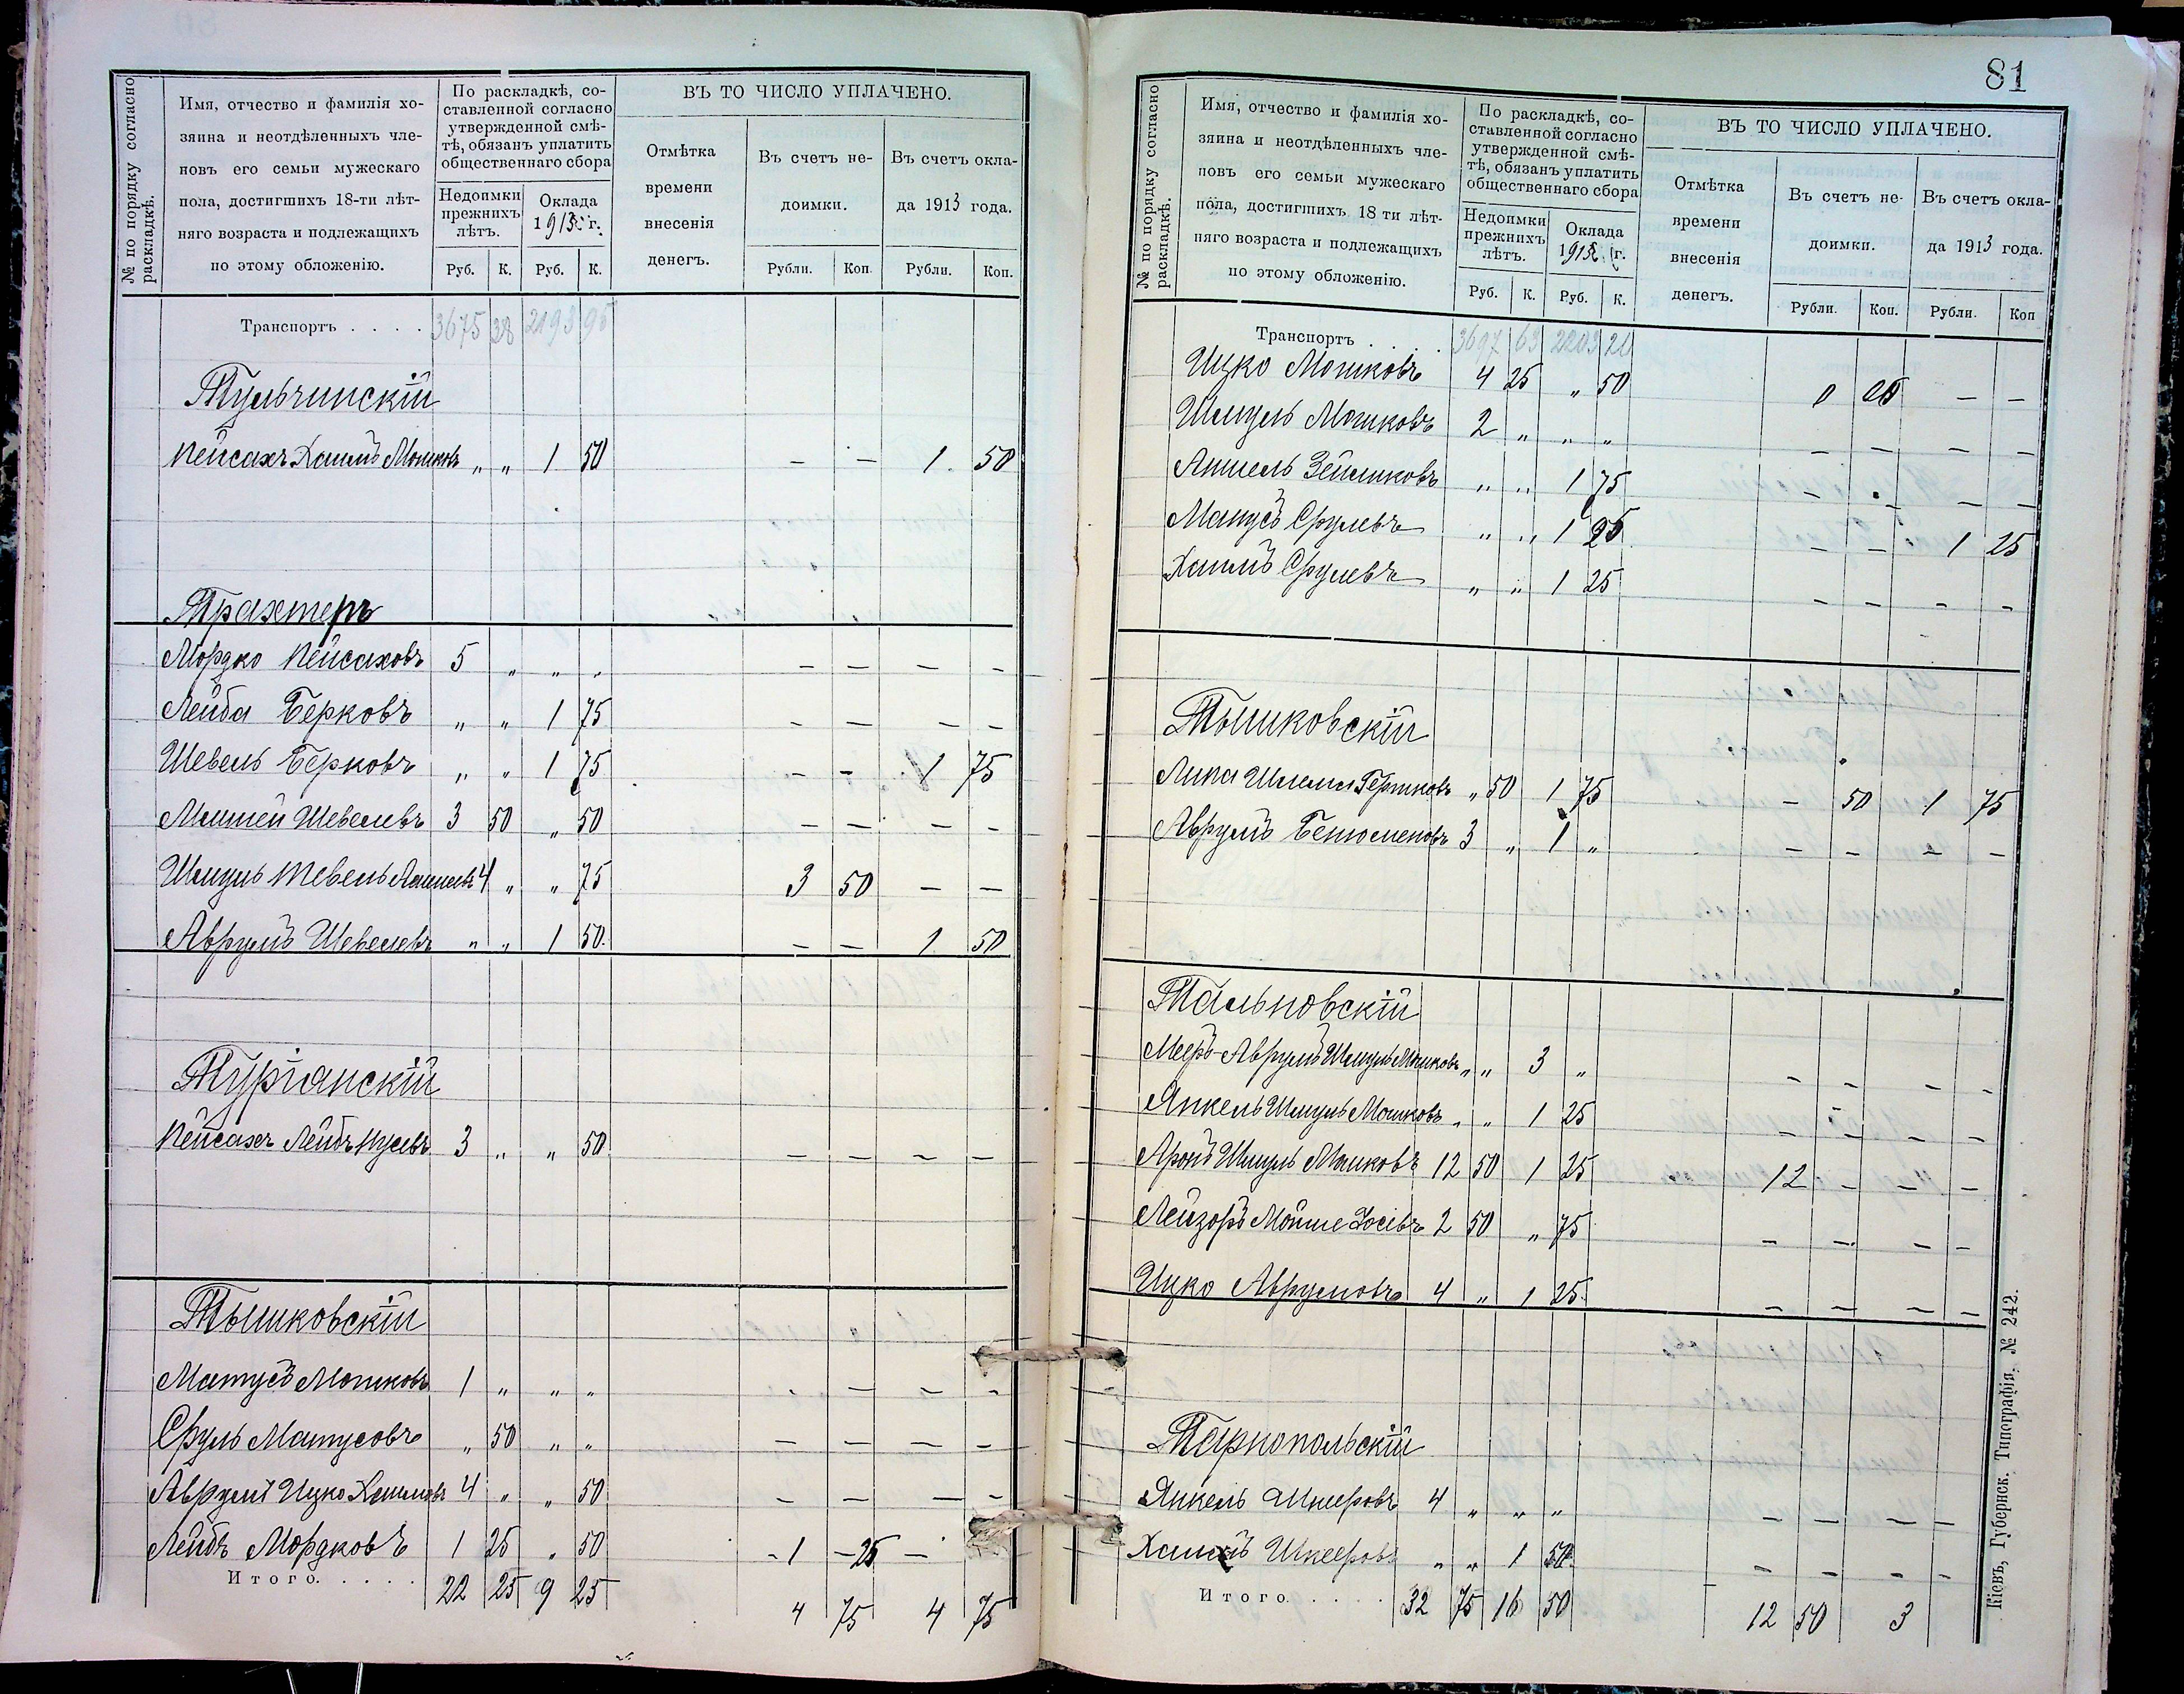 № по порядку согласно
раскладкѣ.
Имя, отчество и фамилія хо-
зяина и неотдѣленныхъ чле-
новъ его семьи мужескаго
пола, достигшихъ 18-ти лѣт-
няго возраста и подлежащихъ
по этому обложенію.
По раскладкѣ, со-
ставленной согласно
утвержденной смѣ-
тѣ, обязанъ уплатить
общественнаго сбора
Недоимки
прежнихъ
лѣтъ.
Оклада
1913 г.
Руб. К. Руб. К.
ВЪ ТО ЧИСЛО УПЛАЧЕНО.
Отмѣтка
времени
внесенія
денегъ.
Въ счетъ не-
доимки.
Въ счетъ окла-
да 1913 года.
Рубли. Коп. Рубли. Коп.
Транспортъ . . . . 3675 38 2193 95
Тульчинскій
Пейсахъ Хаимъ Мошковъ „ „ 1 50 — — 1 50
Трахтеръ
Мордко Пейсаховъ 5 „ „ „ — — — —
Лейба Берковъ „ „ 1 75 — — — —
Шевель Берковъ „ „ 1 75 — — 1 75
Шевелевъ 3 50 „ 50 — — — —
Шмуль 4 „ „ 75 3 50 — —
Аврумъ Шевелевъ „ „ 1 50 — — 1 50
Турianскій
Пейсахъ Лейбъ 3 „ „ 50 — — — —
Тышковскій
Матусъ Мошковъ 1 „ „ „ - — — -
Сруль Матусовъ „ 50 „ „ — — — —
Аврумъ Ицко Хаимовъ 4 „ „ 50 — — — —
Лейбъ Мордковъ 1 25 „ 50 - 1 - 25 —
Итого. . . . . 22 25 9 25 4 75 4 75
81
№ по порядку согласно
раскладкѣ.
Имя, отчество и фамилія хо-
зяина и неотдѣленныхъ чле-
новъ его семьи мужескаго
пола, достигшихъ 18 ти лѣт-
няго возраста и подлежащихъ
по этому обложенію.
По раскладкѣ, со-
ставленной согласно
утвержденной смѣ-
тѣ, обязанъ уплатить
общественнаго сбора
Недоимки
прежнихъ
лѣтъ.
Оклада
1913 г.
Руб. К. Руб. К.
ВЪ ТО ЧИСЛО УПЛАЧЕНО.
Отмѣтка
времени
внесенія
денегъ.
Въ счетъ не-
доимки.
Въ счетъ окла-
да 1913 года.
Рубли. Коп. Рубли. Коп
Транспортъ . . . . 3697 63 2203 20
Ицко Мошковъ 4 25 „ 50 — —
Шмуль Мошковъ 2 „ „ „ — — — —
Аншель Зейликовъ „ „ 1 75 — — —
Манусъ Срулевъ „ „ 1 25 — — 1 25
Хаимъ Срулевъ „ „ 1 25 — — — —
Тышковскій
Липа Шлема Гершковъ „ 50 1 75 — 50 1 75
Аврумъ 3 „ 1 „ — — — —
Тальновскій
Мееръ-Аврумъ Шмуль Мошковъ „ „ 3 „ — — — —
Янкель Шмуль Мошковъ „ „ 1 25 — — — —
Аронъ Шмуль Мошковъ 12 50 1 25 12 — — —
Лейзоръ Мойше Іосевъ 2 50 „ 75 — — — —
Ицко Аврумовъ 4 „ 1 25 — — — —
Тарнопольскій
Янкель 4 „ „ „ — — — —
Хаимъ „ „ 1 50 — — — -
Итого. . . . . 32 75 16 50 12 50 3
Кіевъ, Губернск. Типографія. № 242.